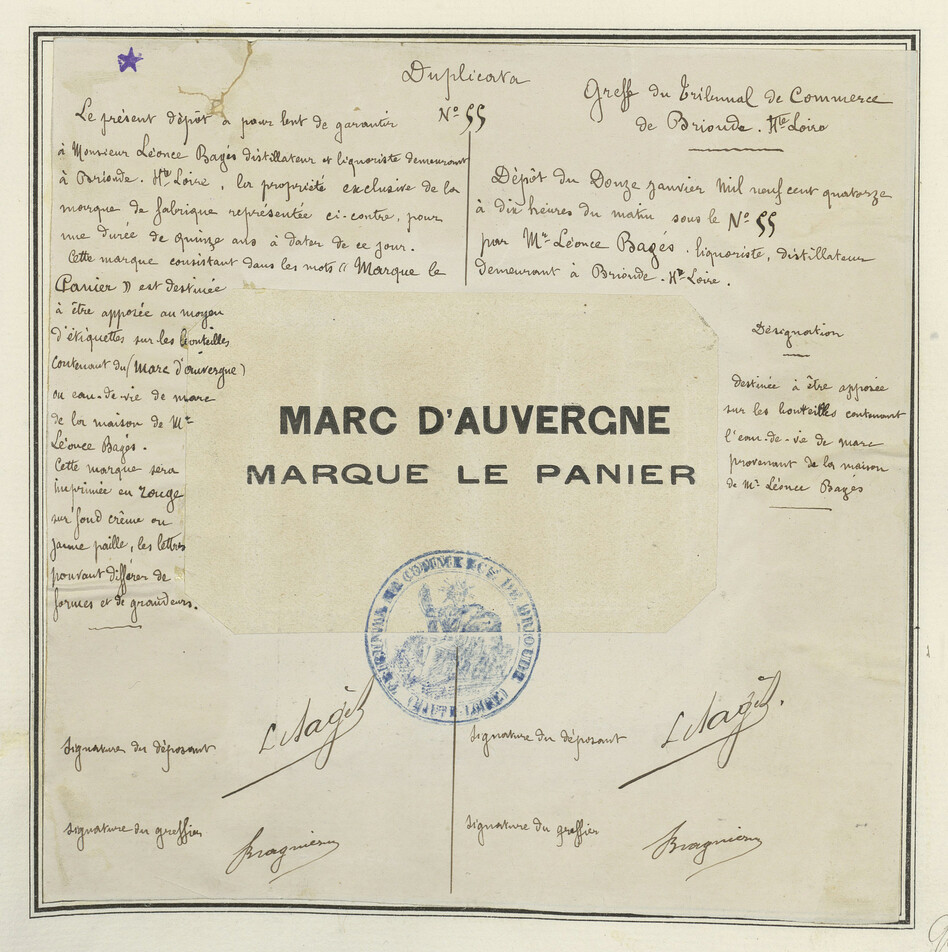 Duplicata
N° 55
Le présent dépôt a pour but de garantir
à Monsieur Léonce Bagés distillateur et liquoriste demeurant
à Brioude. Hte Loire, la propriété exclusive de la
marque de fabrique représentée ci-contre, pour
une durée de quinze ans à dater de ce jour.
Cette marque consistant dans les mots « Marque le
Panier » est destinée
à être apposée au moyen
d'étiquettes sur les bouteilles
contenant du (Marc d'auvergne)
ou eau-de-vie de marc
de la maison de Mr
Léonce Bagés.
Cette marque sera
imprimée en rouge
sur fond crême ou
jaune paille, les lettres
pouvant différer de
formes et de grandeurs.
Greffe du Tribunal de Commerce
de Brioude. Hte Loire
Dépôt du Douze janvier Mil neuf cent quatorze
à dix heures du matin sous le N° 55
par Mr Léonce Bagés. liquoriste, distillateur
demeurant à Brioude. Hte Loire.
Désignation
destinée à être apposée
sur les bouteilles contenant
l'eau-de-vie de marc
provenant de la maison
de Mr Léonce Bagés
MARC D'AUVERGNE
MARQUE LE PANIER
TRIBUNAL DE COMMERCE DE BRIOUDE (HAUTE-LOIRE)
signature du déposant
L Bagés
signature du déposant
L Bagés.
signature du greffier
signature du greffier